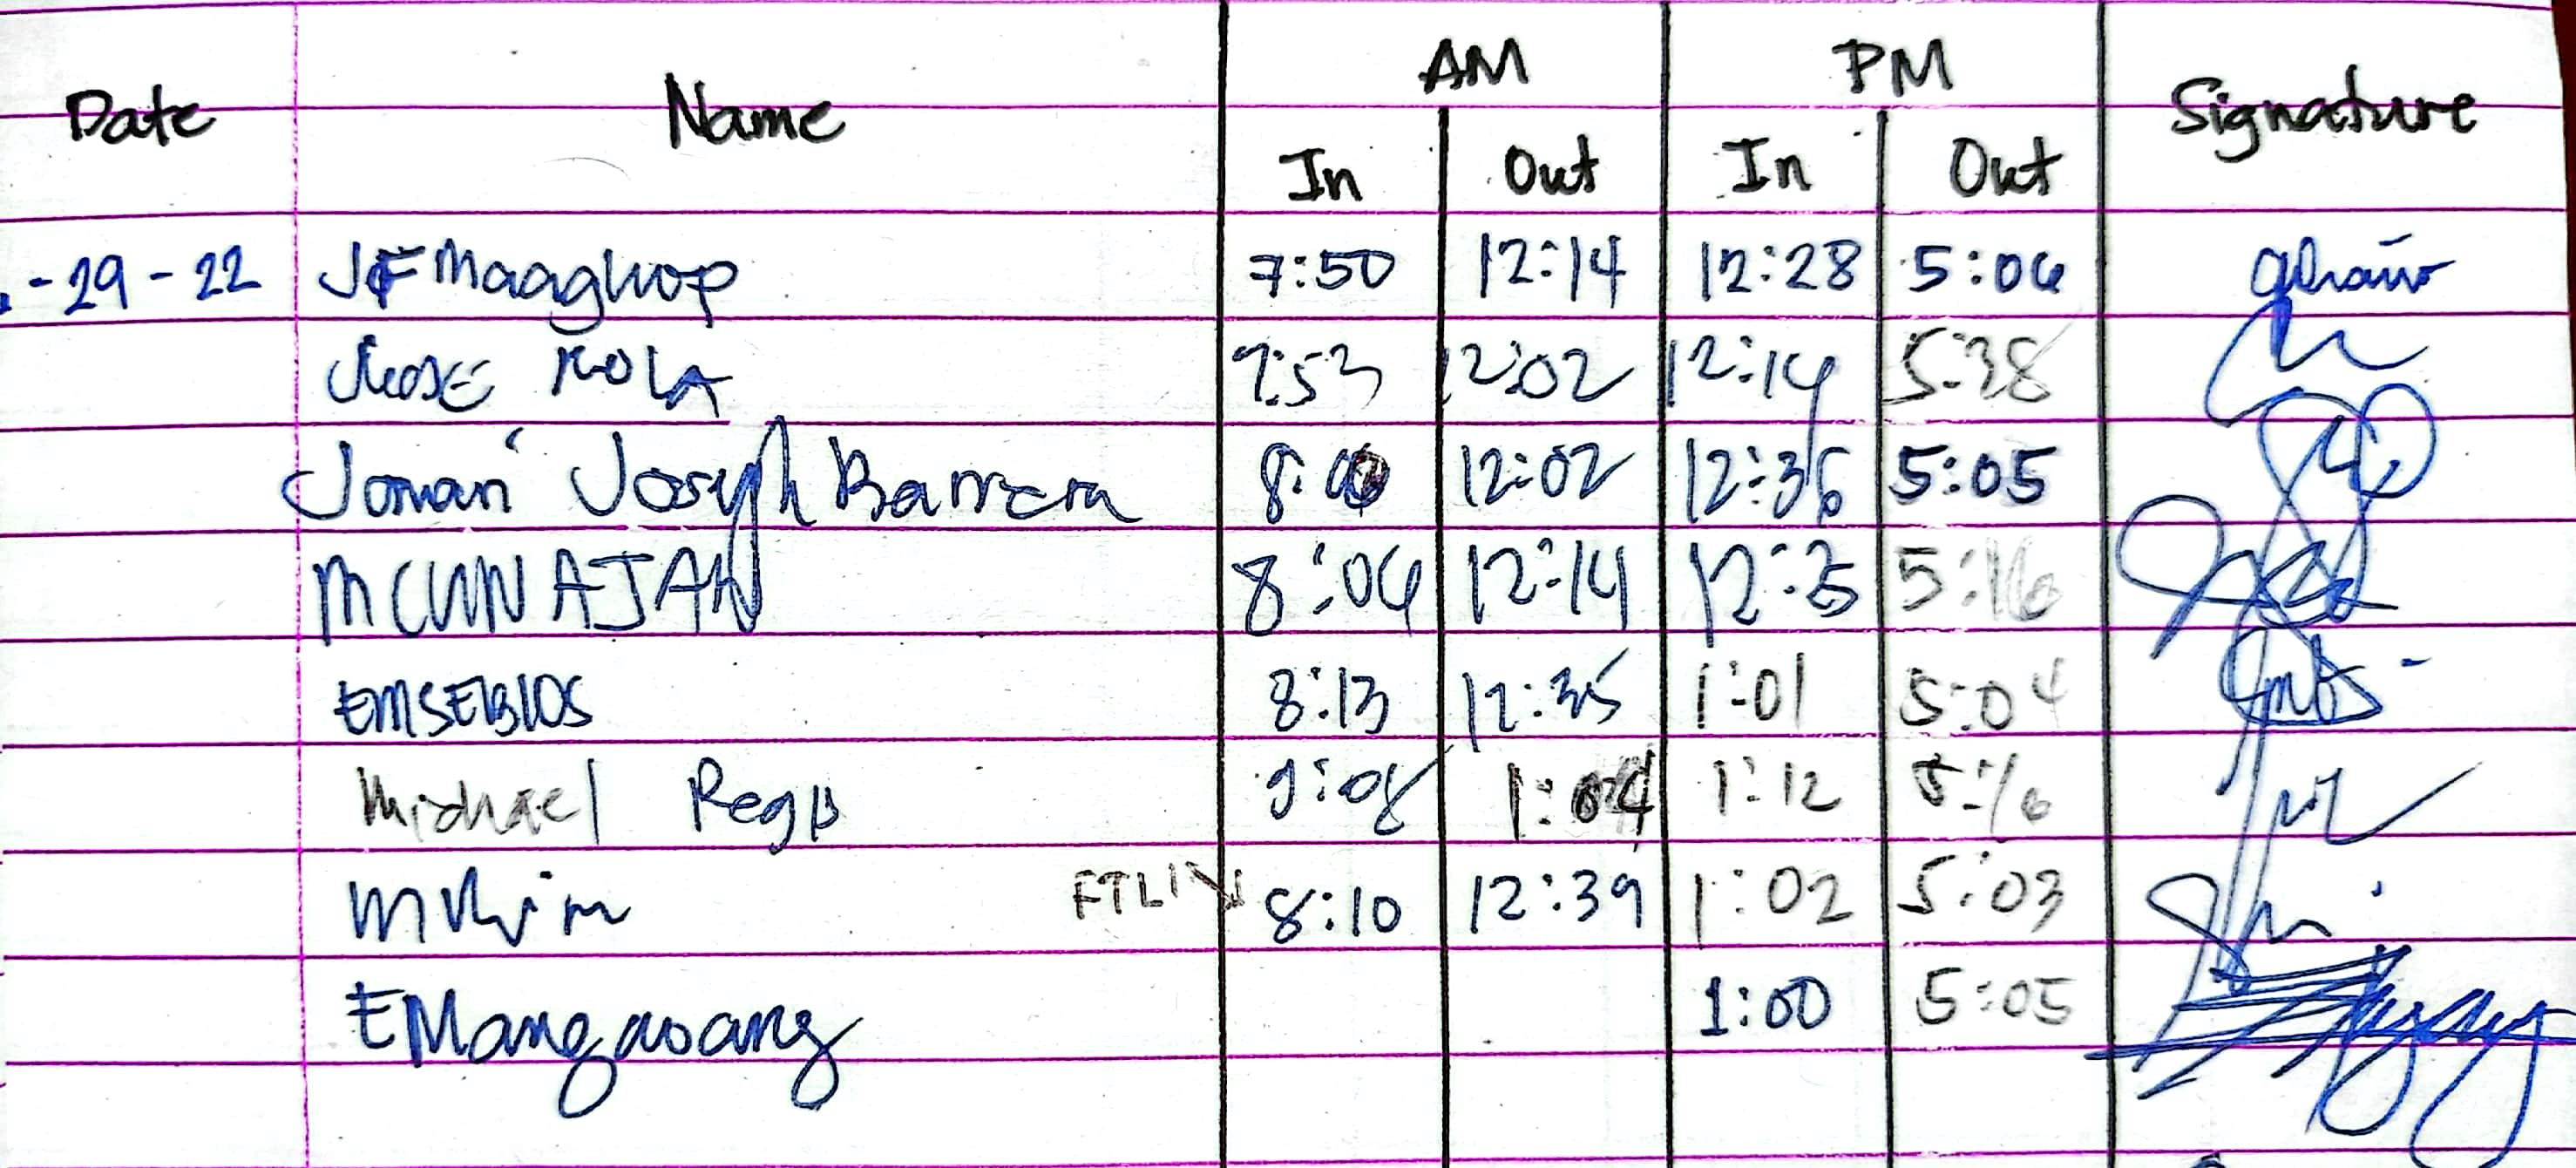 AM PM
Date Name Signature
In Out In Out
-29-22 JF Maaghop 7:50 12:14 12:28 5:06
ROLA 7:53 12:02 12:14 5:38
Jomari Joseph Barrera 8: 12:02 12:36 5:05
AJAN 8:06 12:14 5:16
EMSEBIOS 8:13 12:35 1:01 5:04
Michael Regis 9:08 1:04 1:12 5:16
FTLIN 8:10 12:39 1:02 5:03
EMangaoang 1:00 5:05